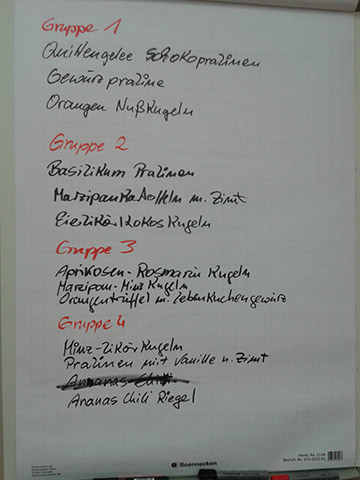 Gruppe 1
Quittengelee Schokopralinen
Gewürzpraline
Orangen Nußkugeln
Gruppe 2
Basilikum Pralinen
Marzipankartoffeln m. Zimt
Eierlikör Kokos Kugeln
Gruppe 3
Aprikosen-Rosmarin Kugeln
Marzipan-Minz Kugeln
Orangentrüffel m. Lebenkuchengewürz
Gruppe 4
Minz-Likör Kugeln
Pralinen mit Vanille u. Zimt
Ananas Chili
Ananas Chili Riegel
Soennecken